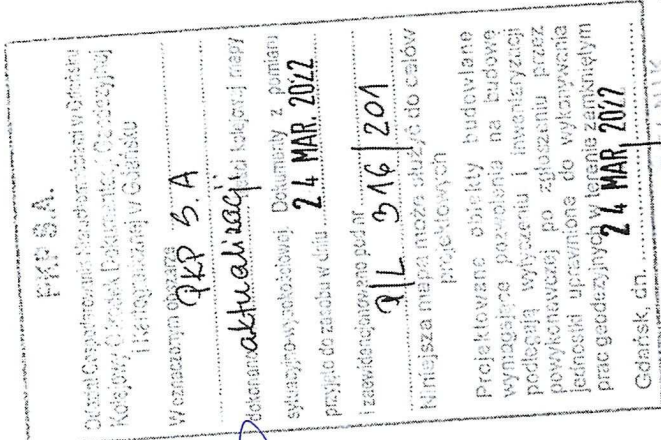 PKP S.A.
Oddział Gospodarowania Nieruchomościami w Gdańsku
Kolejowy Ośrodek Dokumentacji Geodezyjnej
i Kartograficznej w Gdańsku
W oznaczonym obszarze PKP S.A
dokonano aktualizacji kolejowej mapy
sytuacyjno-wysokościowej. Dokumenty z pomiaru
przyjęto do zasobu w dniu 24 MAR. 2022
i zaewidencjonowano pod nr
316/201
Niniejsza mapa może służyć do celów
projektowych
Projektowane obiekty budowlane
wymagające pozwolenia na budowę
podlegają wytyczeniu i inwentaryzacji
powykonawczej po zgłoszeniu przez
jednostki uprawnione do wykonywania
prac geodezyjnych w terenie zamkniętym
Gdańsk, dn. 24 MAR. 2022